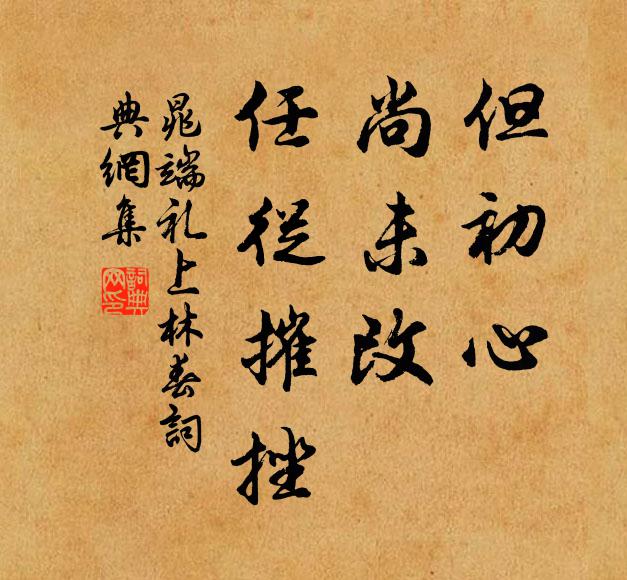 但初心
尚未改
任從摧挫
晁端礼上林春詞
典網集
詞典网印